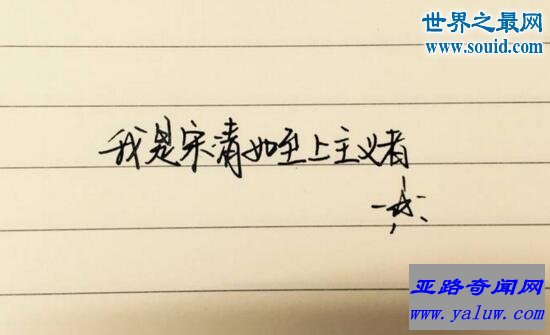 世界之最网
www.souid.com
我是宋清如至上主义者
亚路奇闻网
www.yaluw.com